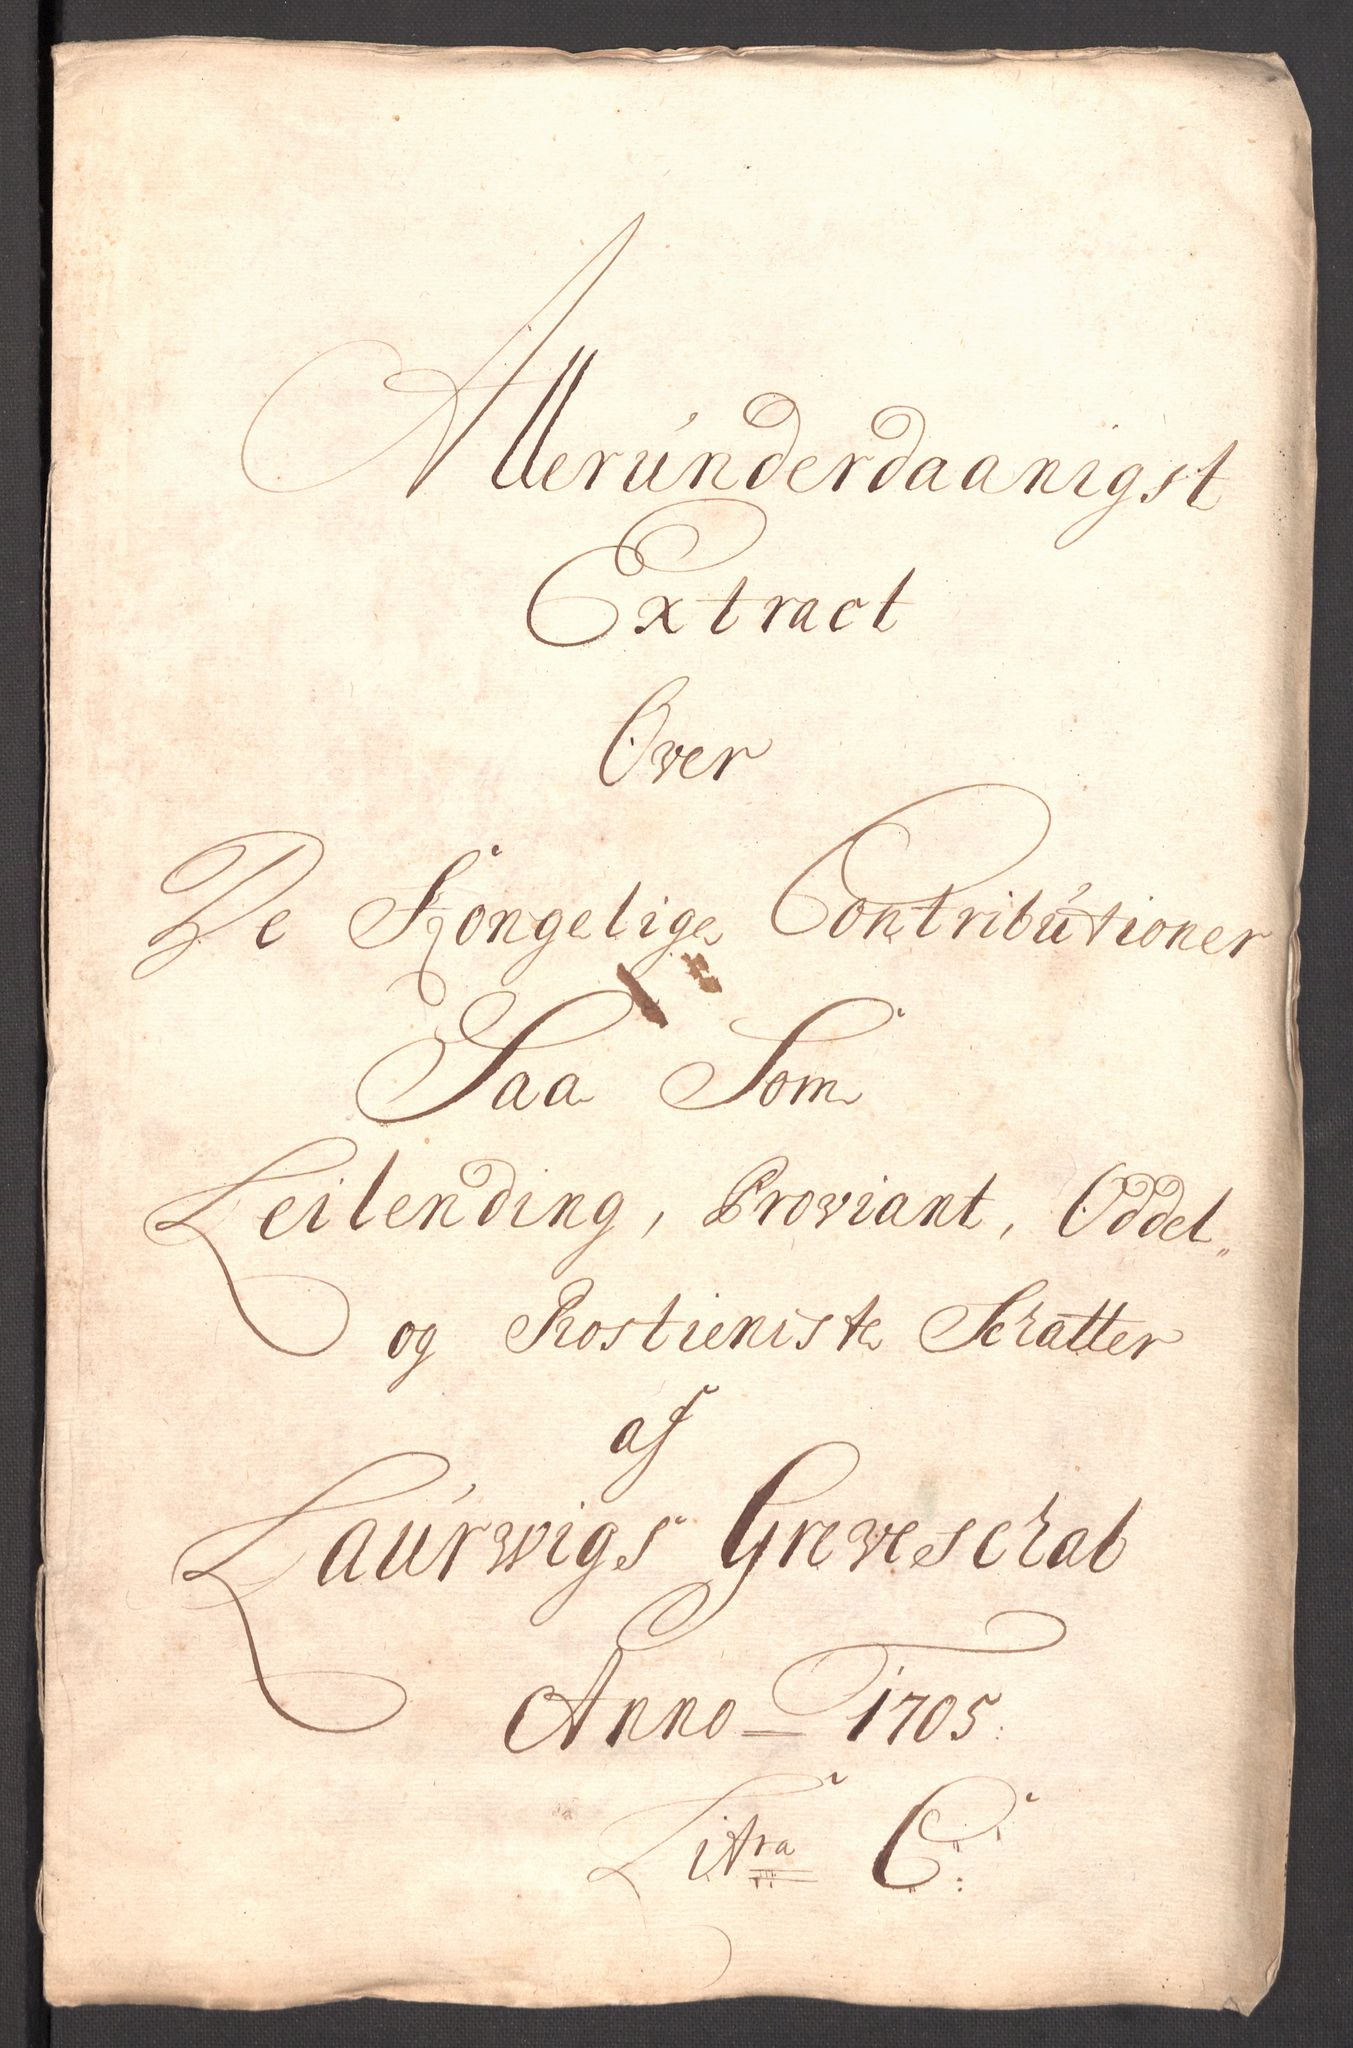 Allerúnderdaanigst
Extract
Over
De Kongelige Contribútioner
Saa Som
Leilending, Proviant, Oddel„
og Rostieniste Schatter
af
Laúrwigs Greveschab
Anno – 1705:
Litra C: